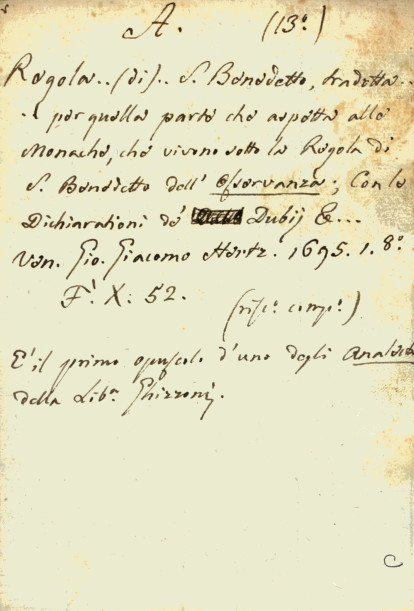 A. (13º)
Regola..(di).. S. Benedetto, tradotta..
.. per quella parte che aspetta alle
Monache, che vivono sotto la Regola di
S. Benedetto dell' Osservanza; Con le
Dichiarationi de' Dubij &...
Ven. Gio. Giacomo Hertz. 1695. 1. 8º.
F. X. 52.
(risc.º comp.º)
E' il primo opuscolo d'uno degli
della Lib.ª Ghizzoni.
C